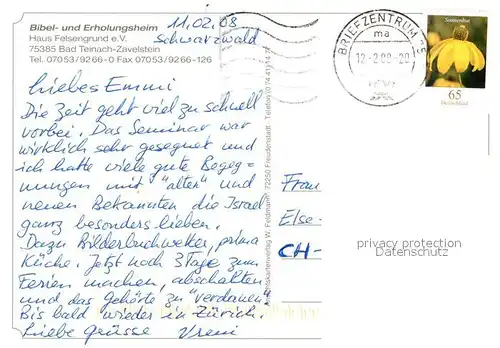 Bibel- und Erholungsheim
Haus Felsengrund e.V.
75385 Bad Teinach-Zavelstein
Tel. 07053/9266-0 Fax 07053/9266-126
11.02.08
Schwarzwald
Liebes Emmi
Die Zeit geht viel zu schnell
vorbei. Das Seminar war
wirklich sehr gesegnet und
ich hatte viele gute Begeg-
nungen mit "alten" und
neuen Bekannten die Israel
ganz besonders lieben.
Dazu Bilderbuchwetter, prima
Küche. Jetzt noch 3 Tage zum
Ferien machen, abschalten
und das gehörte zu "verdauen"
Bis bald wieder in Zürich.
Liebe Grüsse Vreni
Ansichtskartenverlag W. Feldmann 72250 Freudenstadt - Telefon (0 74 41)
BRIEFZENTRUM 75
ma
12.-2.08-20
Sonnenhut
65
Deutschland
Frau
Else-
CH-
privacy protection
Datenschutz